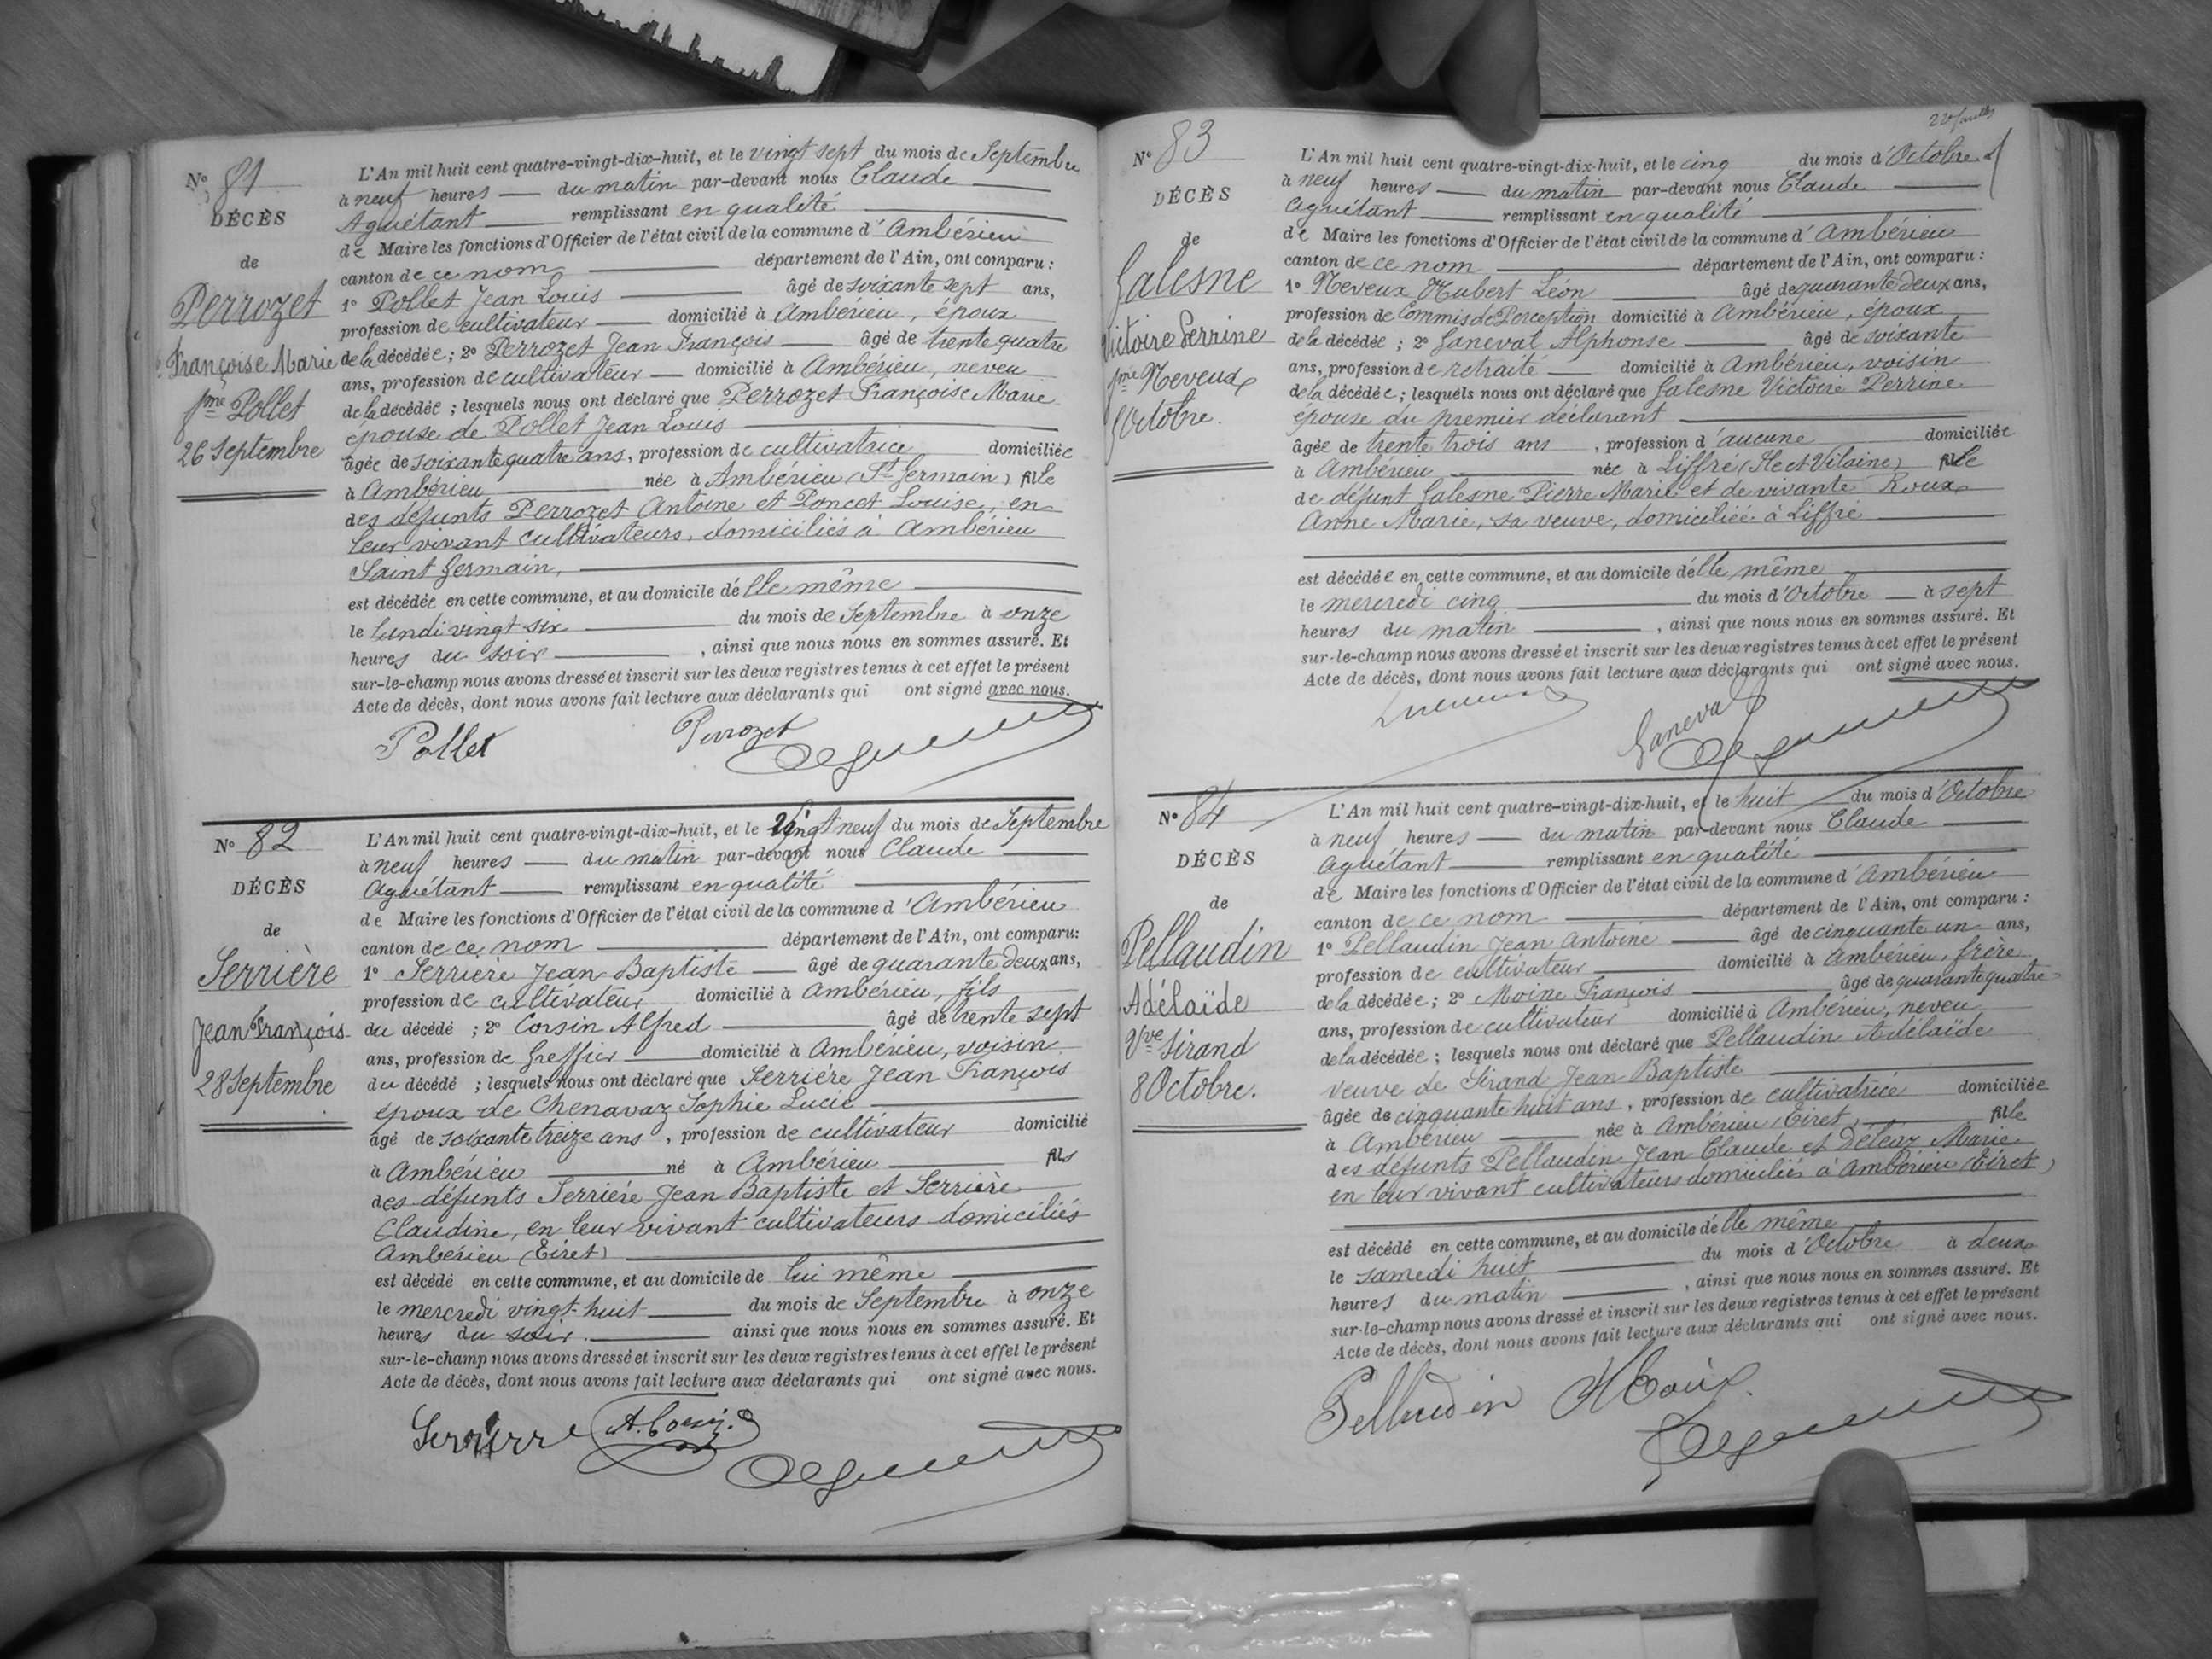 N° 81
DÉCÈS
de
Perrozet
Françoise Marie
fme Pollet
26 Septembre
L'An mil huit cent quatre-vingt-dix-huit, et le vingt sept du mois de Septembre
à neuf heures du matin par-devant nous Claude
Aguétant remplissant en qualité
de Maire les fonctions d'Officier de l'état civil de la commune d'Ambérieu
canton de ce nom département de l'Ain, ont comparu :
1° Pollet Jean Louis âgé de soixante sept ans,
profession de cultivateur domicilié à Ambérieu, époux
de la décédée ; 2° Perrozet Jean François âgé de trente quatre
ans, profession de cultivateur domicilié à Ambérieu, neveu
de la décédée ; lesquels nous ont déclaré que Perrozet Françoise Marie
épouse de Pollet Jean Louis
âgée de soixante quatre ans, profession de cultivatrice domiciliée
à Ambérieu née à Ambérieu (St Germain) fille
des défunts Perrozet Antoine et Poncet Louise, en
leur vivant cultivateurs, domiciliés à Ambérieu
Saint Germain,
est décédée en cette commune, et au domicile d'elle même
le lundi vingt six du mois de Septembre à onze
heures du soir, ainsi que nous nous en sommes assuré. Et
sur-le-champ nous avons dressé et inscrit sur les deux registres tenus à cet effet le présent
Acte de décès, dont nous avons fait lecture aux déclarants qui ont signé avec nous.
Pollet Perrozet
N° 82
DÉCÈS
de
Serrière
Jean François
28 Septembre
L'An mil huit cent quatre-vingt-dix-huit, et le vingt neuf du mois de Septembre
à neuf heures du matin par-devant nous Claude
Aguétant remplissant en qualité
de Maire les fonctions d'Officier de l'état civil de la commune d'Ambérieu
canton de ce nom département de l'Ain, ont comparu:
1° Serrière Jean Baptiste âgé de quarante deux ans,
profession de cultivateur domicilié à Ambérieu, fils
du décédé ; 2° Corsin Alfred âgé de trente sept
ans, profession de Greffier domicilié à Ambérieu, voisin
du décédé ; lesquels nous ont déclaré que Serrière Jean François
époux de Chenavaz Sophie Lucie
âgé de soixante treize ans, profession de cultivateur domicilié
à Ambérieu né à Ambérieu fils
des défunts Serrière Jean Baptiste et Serrière
Claudine, en leur vivant cultivateurs domiciliés
Ambérieu (Tiret)
est décédé en cette commune, et au domicile de lui même
le mercredi vingt-huit du mois de Septembre à onze
heures du soir. ainsi que nous nous en sommes assuré. Et
sur-le-champ nous avons dressé et inscrit sur les deux registres tenus à cet effet le présent
Acte de décès, dont nous avons fait lecture aux déclarants qui ont signé avec nous.
Serrière A. Corsin
N° 83
DÉCÈS
de
Galesne
Victoire Perrine
fme Neveux
5 Octobre.
L'An mil huit cent quatre-vingt-dix-huit, et le cinq du mois d'Octobre
à neuf heures du matin par-devant nous Claude
Aguétant remplissant en qualité
de Maire les fonctions d'Officier de l'état civil de la commune d'Ambérieu
canton de ce nom département de l'Ain, ont comparu :
1° Neveux Hubert Léon âgé de quarante deux ans,
profession de Commis de Perception domicilié à Ambérieu, époux
de la décédée ; 2° Ganeval Alphonse âgé de soixante
ans, profession de retraité domicilié à Ambérieu, voisin
de la décédée ; lesquels nous ont déclaré que Galesne Victoire Perrine
épouse du premier déclarant
âgée de trente trois ans, profession d'aucune domiciliée
à Ambérieu née à Liffré (Ile et Vilaine) fille
de défunt Galesne Pierre Marie et de vivante Roux
Anne Marie, sa veuve, domiciliée à Liffré
est décédée en cette commune, et au domicile d'elle même
le mercredi cinq du mois d'Octobre à sept
heures du matin, ainsi que nous nous en sommes assuré. Et
sur-le-champ nous avons dressé et inscrit sur les deux registres tenus à cet effet le présent
Acte de décès, dont nous avons fait lecture aux déclarants qui ont signé avec nous.
Ganeval
N° 84
DÉCÈS
de
Pellaudin
Adélaïde
Vve Sirand
8 Octobre.
L'An mil huit cent quatre-vingt-dix-huit, et le huit du mois d'Octobre
à neuf heures du matin par-devant nous Claude
Aguétant remplissant en qualité
de Maire les fonctions d'Officier de l'état civil de la commune d'Ambérieu
canton de ce nom département de l'Ain, ont comparu :
1° Pellaudin Jean Antoine âgé de cinquante un ans,
profession de cultivateur domicilié à Ambérieu, frère
de la décédée; 2° Moine François âgé de quarante quatre
ans, profession de cultivateur domicilié à Ambérieu, neveu
de la décédée ; lesquels nous ont déclaré que Pellaudin Adélaïde
veuve de Sirand Jean Baptiste
âgée de cinquante huit ans, profession de cultivatrice domiciliée
à Ambérieu née à Ambérieu (Tiret, fille
des défunts Pellaudin Jean Claude et Deléaz Marie
en leur vivant cultivateurs domiciliés à Ambérieu (Tiret)
est décédé en cette commune, et au domicile d'elle même
le samedi huit du mois d'Octobre à deux
heures du matin, ainsi que nous nous en sommes assuré. Et
sur-le-champ nous avons dressé et inscrit sur les deux registres tenus à cet effet le présent
Acte de décès, dont nous avons fait lecture aux déclarants qui ont signé avec nous.
Pellaudin